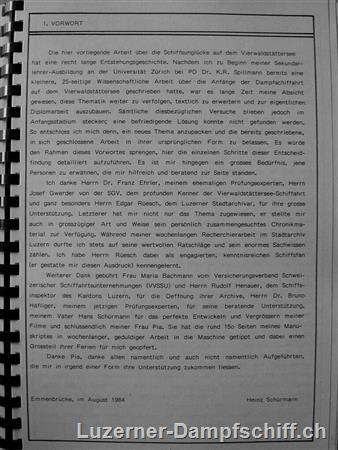 1. VORWORT
Die hier vorliegende Arbeit über die Schiffsunglücke auf dem Vierwaldstättersee
hat eine recht lange Entstehungsgeschichte. Nachdem ich zu Beginn meiner Sekundar-
lehrer-Ausbildung an der Universität Zürich bei PD Dr. K.R. Spillmann bereits eine
kleinere, 25-seitige Wissenschaftliche Arbeit über die Anfänge der Dampfschiffahrt
auf dem Vierwaldstättersee geschrieben hatte, war es lange Zeit meine Absicht
gewesen, diese Thematik weiter zu verfolgen, textlich zu erweitern und zur eigentlichen
Diplomarbeit auszubauen. Sämtliche diesbezüglichen Versuche blieben jedoch im
Anfangsstadium stecken; eine befriedigende Lösung konnte nicht gefunden werden.
So entschloss ich mich denn, ein neues Thema anzupacken und die bereits geschriebene,
in sich geschlossene Arbeit in ihrer ursprünglichen Form zu belassen. Es würde
den Rahmen dieses Vorwortes sprengen, hier die einzelnen Schritte dieser Entscheid-
findung detailliert aufzuführen. Es ist mir hingegen ein grosses Bedürfnis, jene
Personen zu erwähnen, die mir hilfreich und beratend zur Seite standen.
Ich danke Herrn Dr. Franz Ehrler, meinem ehemaligen Prüfungsexperten, Herrn
Josef Gwerder von der SGV, dem profunden Kenner der Vierwaldstättersee-Schiffahrt
und ganz besonders Herrn Edgar Rüesch, dem Luzerner Stadtarchivar, für ihre grosse
Unterstützung. Letzterer hat mir nicht nur das Thema zugewiesen, er stellte mir
auch in grosszügiger Art und Weise sein persönlich zusammengesuchtes Chronikma-
terial zur Verfügung. Während meiner wochenlangen Recherchierarbeit im Stadtarchiv
Luzern durfte ich stets auf seine wertvollen Ratschläge und sein enormes Sachwissen
zählen. Ich habe Herrn Rüesch dabei als engagierten, kenntnisreichen Schiffsfan
(er gestatte mir diesen Ausdruck) kennengelernt.
Weiterer Dank gebührt Frau Maria Bachmann vom Versicherungsverband Schwei-
zerischer Schiffahrtsunternehmungen (VVSSU) und Herrn Rudolf Henauer, dem Schiffs-
inspektor des Kantons Luzern, für die Oeffnung ihrer Archive, Herrn Dr. Bruno
Häfliger, meinem jetzigen Prüfungsexperten, für seine beratende Unterstützung,
meinem Vater Hans Schürmann für das perfekte Entwickeln und Vergrössern meiner
Filme und schlussendlich meiner Frau Pia. Sie hat die rund 150 Seiten meines Manu-
skriptes in wochenlanger, geduldiger Arbeit in die Maschine getippt und dabei einen
Grossteil ihrer Ferien für mich geopfert.
Danke Pia, danke allen namentlich und auch nicht namentlich Aufgeführten,
die mir in irgend einer Form ihre Unterstützung zukommen liessen.
Emmenbrücke, im August 1984 Heinz Schürmann
Luzerner-Dampfschiff.ch